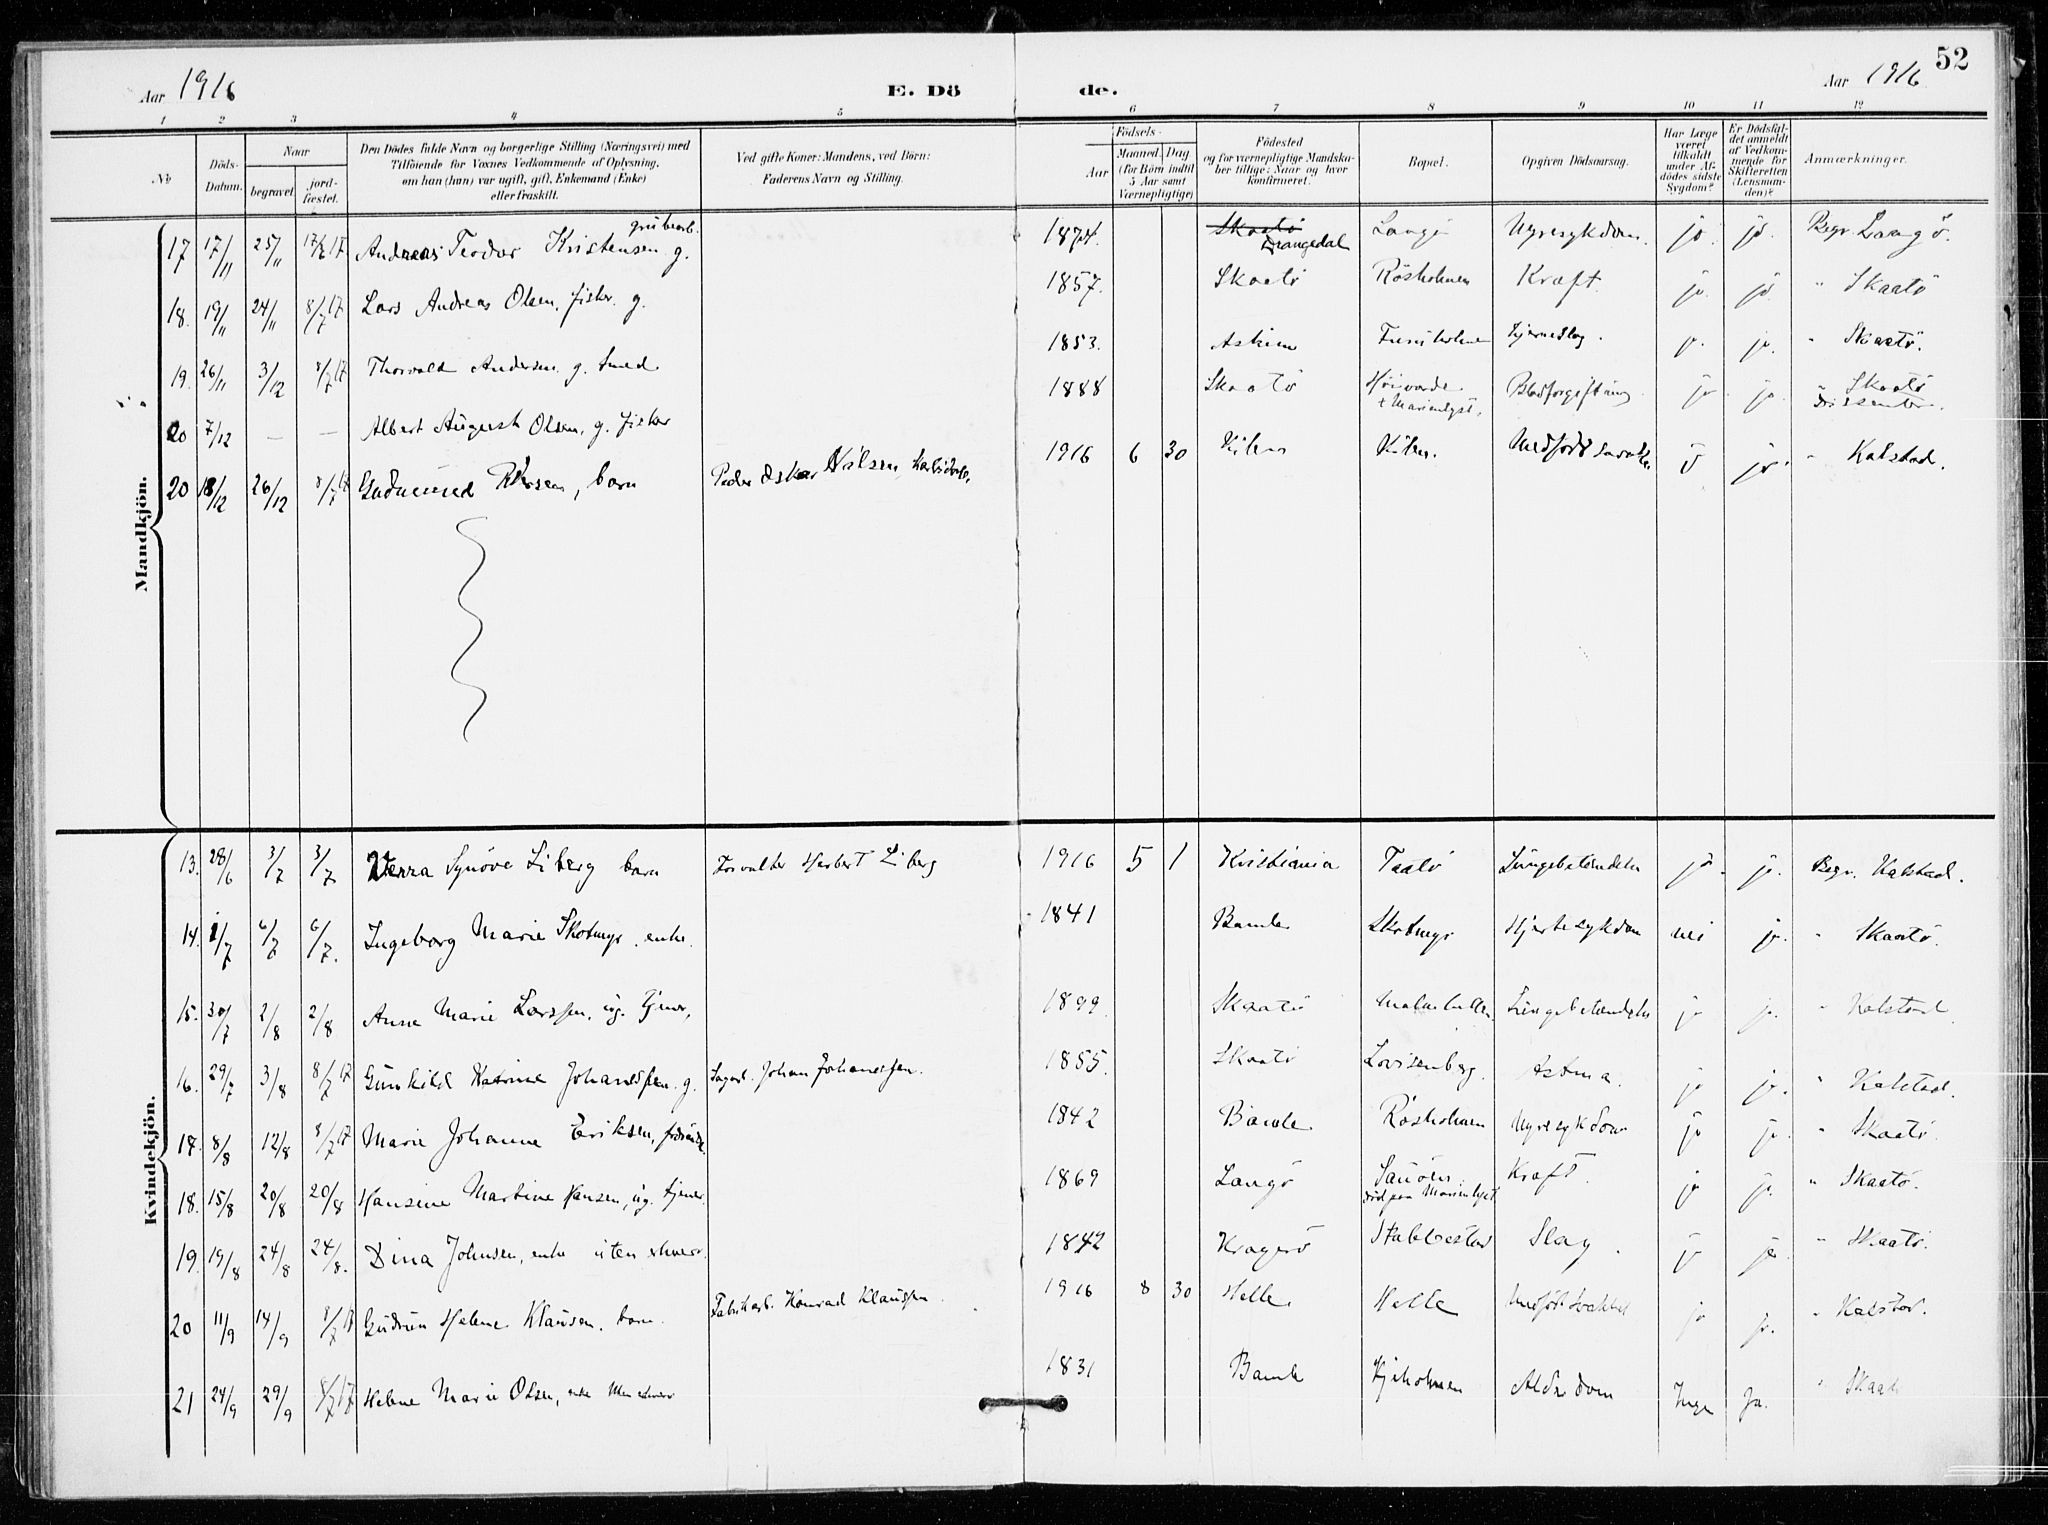 52
Aar 1916
E. Dö de.
Aar 1916
1 2 3 4 5 6 7 8 9 10 11 12
No
Döds-Datum.
Naar
begravet.
jord-fæstet.
Den Dödes fulde Navn og borgerlige Stilling (Næringsvei) med
Tilföiende for Voxnes Vedkommende af Oplysning,
om han (hun) var ugift, gift, Enkemand (Enke)
eller fraskilt.
Ved gifte Koner: Mandens, ved Börn:
Faderens Navn og Stilling.
Födsels-
Aar
Maaned Dag
(for Börn indtil
5 Aar samt
Værnepligtige)
Födested
og for værnepligtige Mandska-
ber tillige: Naar og hvor
konfirmeret.
Bopæl.
Opgiven Dödsaarsag.
Har Læge
været
tilkaldt
under Af-
dödes sidste
Sygdom?
Er Dödsfal-
det anmeldt
af Vedkom-
mende for
Skifteretten
(Lensman-
den)?
Anmærkninger.
Mandkjön.
17 17/11 25/11 17/6 17 Andreas Teodor Kristensen grubearb. g. 1874. Skaatö Drangedal Langö Nyresykdom. jo. jo. Begr. Langö.
18. 19/11 24/11 8/7 17 Lars Andreas Olsen. fisker. g. 1857. Skaatö Rösholmen Kraft. jo. jo. " Skaatö
19. 26/11 3/12 8/7 17 Thorvald Andersen g. Smed 1853. Askim Furuholmen Hjerneslag. jo. jo. " Skaatö.
20 7/12 — — Albert August Olsen, g. fisker 1888 Skaatö + Marienlyst. Blodforgiftning jo jo. " Skaatö Dissenter.
20 18/12 26/12 8/7 17 Gudmund, barn Fader Oskar Nilsen 1916 6 30 Kilen Kilen. Medfödt svakhet jo jo " Kalstad.
Kvindekjön.
13. 28/6 3/7 3/7. Verra Synöve Liberg barn Forvalter Herbert Liberg 1916 5 1 Kristiania Taatö Lungebetændelse jo. jo. Begr. Kalstad.
14. 1/7 6/7 6/7. Ingeborg Marie Skotmyr. enke. 1841 Bamle Skotmyr Hjertesykdom nei jo. " Skaatö.
15. 30/7 2/8 2/8 Anna Marie Larssen, ug. tjener, 1899 Skaatö Lungebetændelse jo jo. " Kalstad
16. 29/7 3/8 8/7 17 Gunhild Katrine Johanessen g. Johan Johanessen. 1855. Skaatö Lovisenberg. Astma. jo jo. " Kalstad.
17. 8/8 12/8 8/7 17 Marie Johanne Eriksen, 1842 Bamle Rösholmen Nyresykdom jo jo. " Skaatö.
18. 15/8 20/8 20/8 Hansine Martine Hansen, ug. tjener. 1869 Langö död paa Marienlyst. Kraft. jo jo. " Skaatö.
19. 19/8 24/8 24/8. Dina Johnsen, enke uten erhverv. 1842 Kragerö Stabbestad Slag. jo jo. " Skaatö.
20 11/9 14/9 8/7 17 Gudrun Helene Klausen. barn. Fabrikarb. Konrad Klaussen. 1916 8 30 Helle. Helle Medfödt svakhet jo jo. " Kalstad.
21 24/9 29/9 8/7 17 Helene Marie Olsen, enke uten erhverv 1831 Bamle Alderdom Inge Ja. " Skaatö